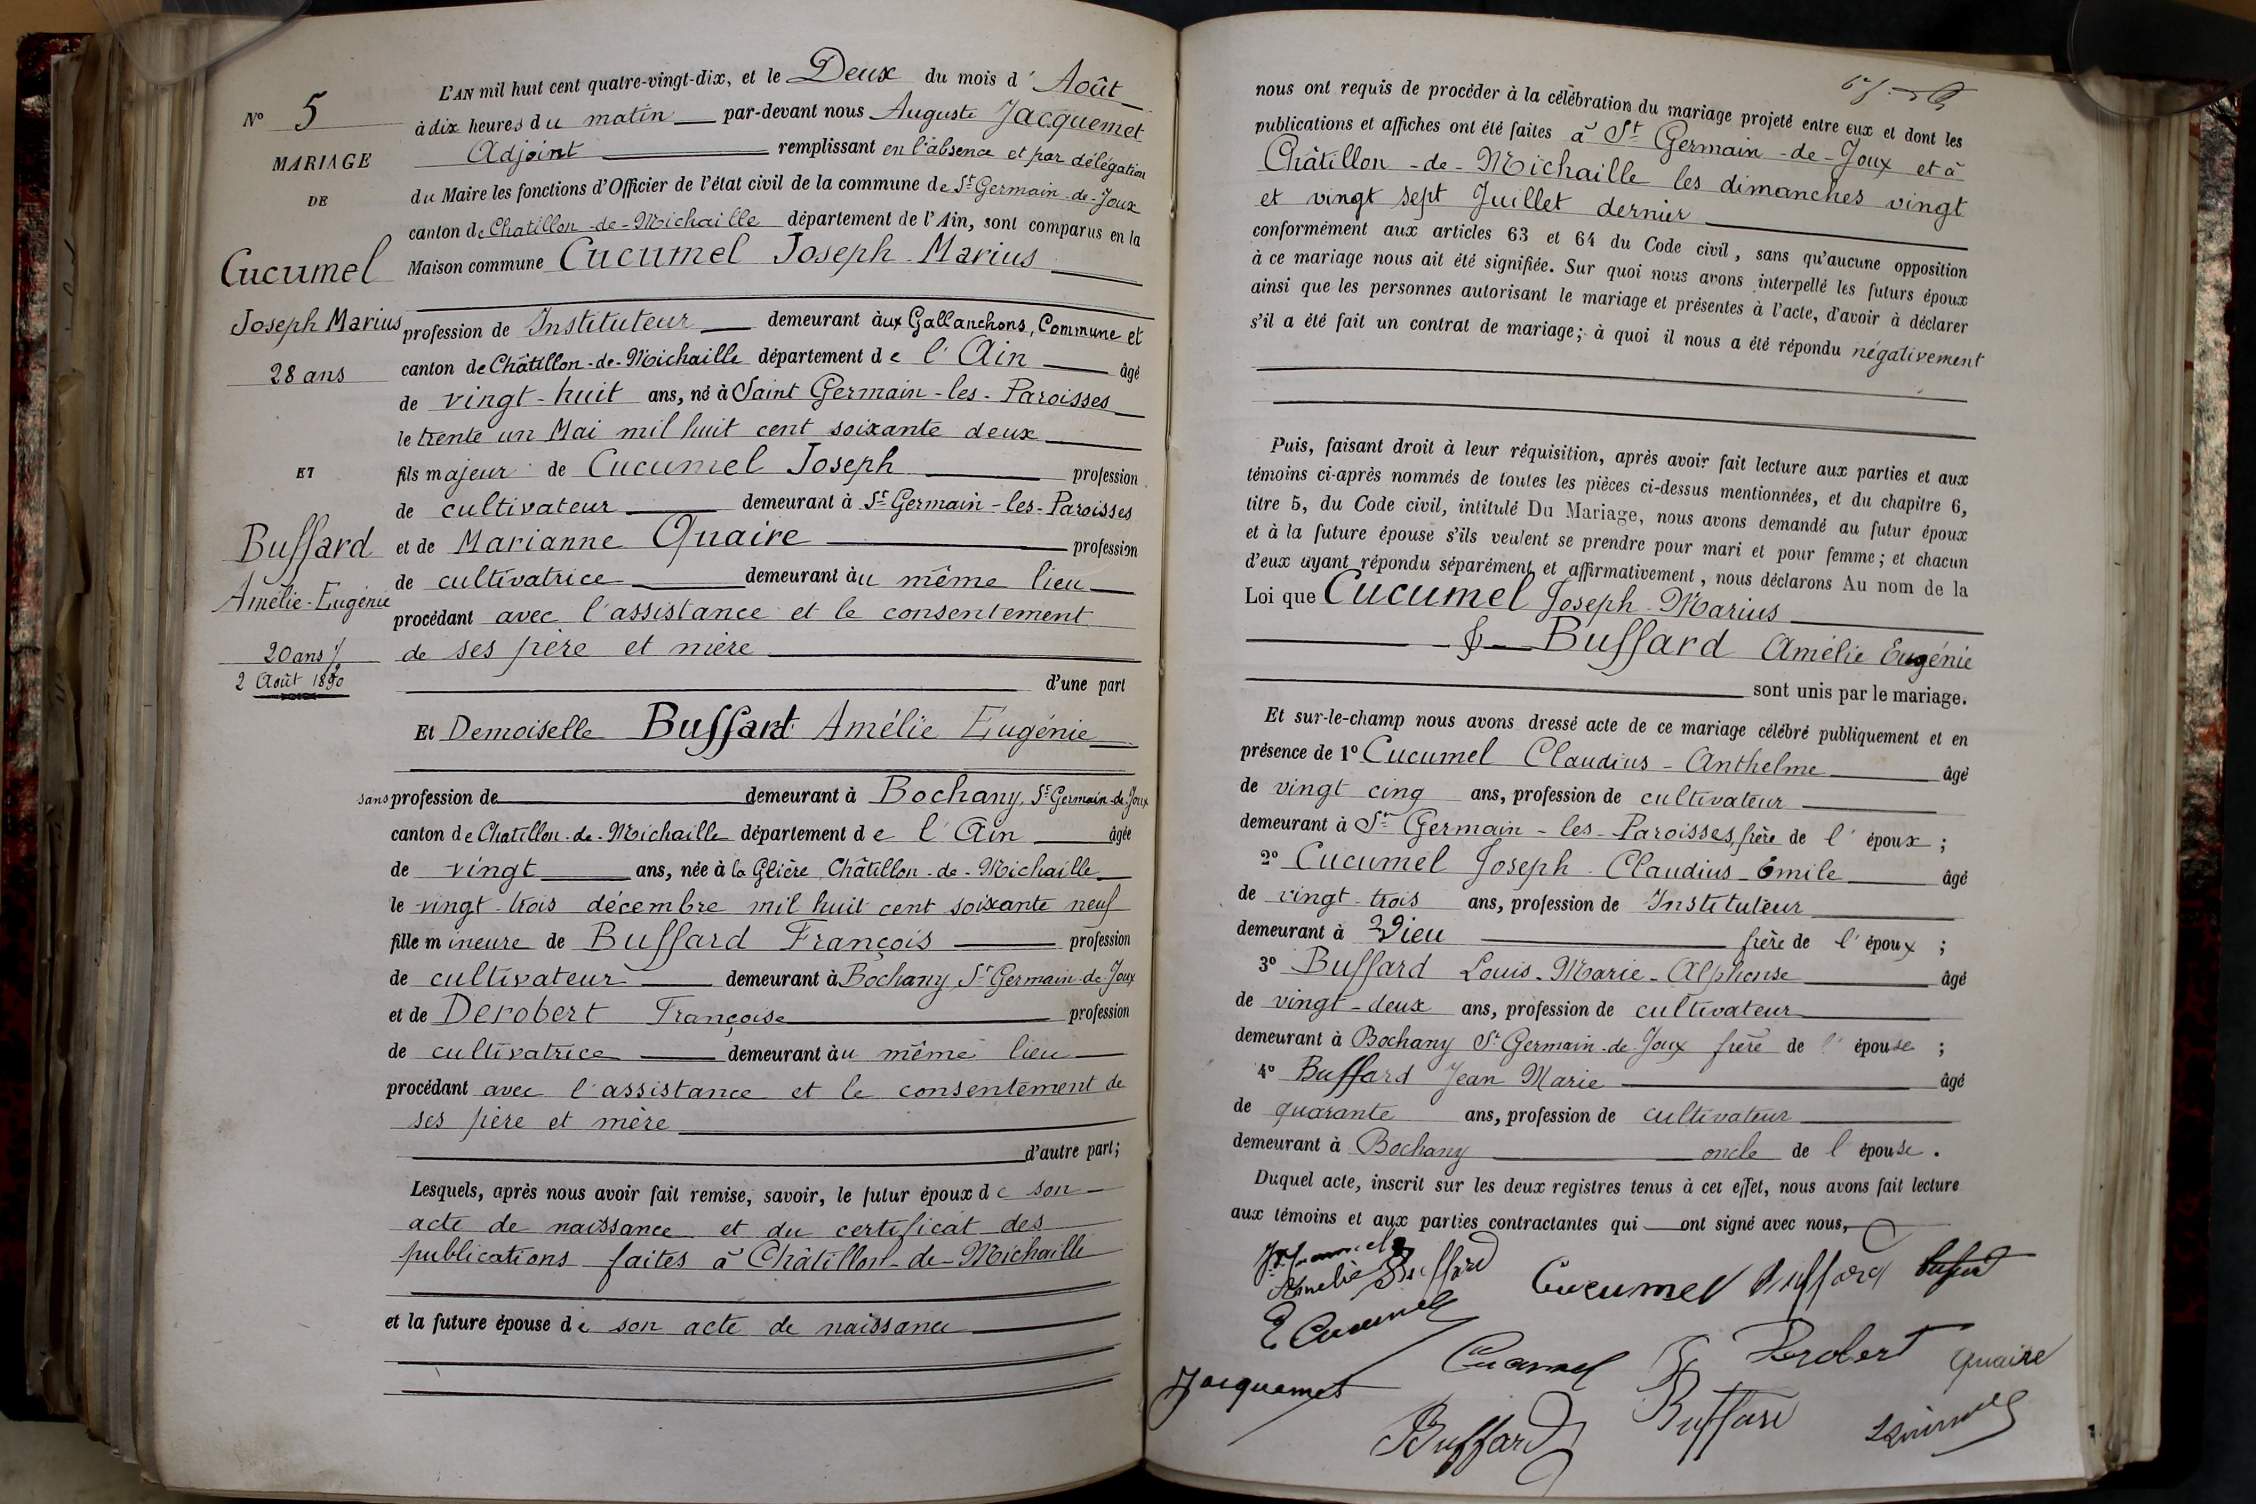 L'AN mil huit cent quatre-vingt-dix, et le Deux du mois d' Août
à dix heures du matin par-devant nous Auguste Jacquemet
Adjoint remplissant en l'absence et par délégation
du Maire les fonctions d'Officier de l'état civil de la commune de St Germain-de-Joux
canton de Chatillon-de-Michaille département de l'Ain, sont comparus en la
Maison commune Cucumel Joseph-Marius
profession de Instituteur demeurant aux Gallanchons, Commune et
canton de Châtillon-de-Michaille département de l'Ain âgé
de vingt-huit ans, né à Saint Germain-les-Paroisses
le trente un Mai mil huit cent soixante deux
fils majeur de Cucumel Joseph profession
de cultivateur demeurant à St Germain-les-Paroisses
et de Marianne Quaire profession
de cultivatrice demeurant au même lieu
procédant avec l'assistance et le consentement
de ses père et mère
d'une part
Et Demoiselle Buffard Amélie Eugénie
sans profession de demeurant à Bochany, St Germain-de-Joux
canton de Chatillon-de-Michaille département de l'Ain âgée
de vingt ans, née à la Glière, Châtillon-de-Michaille
le vingt-trois décembre mil huit cent soixante neuf
fille mineure de Buffard François profession
de cultivateur demeurant à Bochany, St Germain-de-Joux
et de Derobert Françoise profession
de cultivatrice demeurant au même lieu
procédant avec l'assistance et le consentement de
ses père et mère
d'autre part;
Lesquels, après nous avoir fait remise, savoir, le futur époux de son
acte de naissance et du certificat des
publications faites à Châtillon-de-Michaille
et la future épouse de son acte de naissance
No 5
MARIAGE
DE
Cucumel
Joseph Marius
28 ans
ET
Buffard
Amélie-Eugénie
20 ans
2 Août 1890
nous ont requis de procéder à la célébration du mariage projeté entre eux et dont les
publications et affiches ont été faites à St Germain-de-Joux et à
Châtillon-de-Michaille les dimanches vingt
et vingt sept Juillet dernier
conformément aux articles 63 et 64 du Code civil, sans qu'aucune opposition
à ce mariage nous ait été signifiée. Sur quoi nous avons interpellé les futurs époux
ainsi que les personnes autorisant le mariage et présentes à l'acte, d'avoir à déclarer
s'il a été fait un contrat de mariage; à quoi il nous a été répondu négativement
Puis, faisant droit à leur réquisition, après avoir fait lecture aux parties et aux
témoins ci-après nommés de toutes les pièces ci-dessus mentionnées, et du chapitre 6,
titre 5, du Code civil, intitulé Du Mariage, nous avons demandé au futur époux
et à la future épouse s'ils veulent se prendre pour mari et pour femme; et chacun
d'eux ayant répondu séparément et affirmativement, nous déclarons Au nom de la
Loi que Cucumel Joseph-Marius
& Buffard Amélie Eugénie
sont unis par le mariage.
Et sur-le-champ nous avons dressé acte de ce mariage célébré publiquement et en
présence de 1o Cucumel Claudius-Anthelme âgé
de vingt cinq ans, profession de cultivateur
demeurant à St Germain-les-Paroisses, frère de l'époux;
2o Cucumel Joseph-Claudius-Emile âgé
de vingt-trois ans, profession de Instituteur
demeurant à Vieu frère de l'époux;
3o Buffard Louis-Marie-Alphonse âgé
de vingt-deux ans, profession de cultivateur
demeurant à Bochany St Germain-de-Joux frère de l'épouse;
4o Buffard Jean Marie âgé
de quarante ans, profession de cultivateur
demeurant à Bochany oncle de l'épouse.
Duquel acte, inscrit sur les deux registres tenus à cet effet, nous avons fait lecture
aux témoins et aux parties contractantes qui ont signé avec nous,
Amélie Buffard Cucumel Buffard
E Cucumel
Cucumel Derobert Quaire
Jacquemet
Buffard Buffard